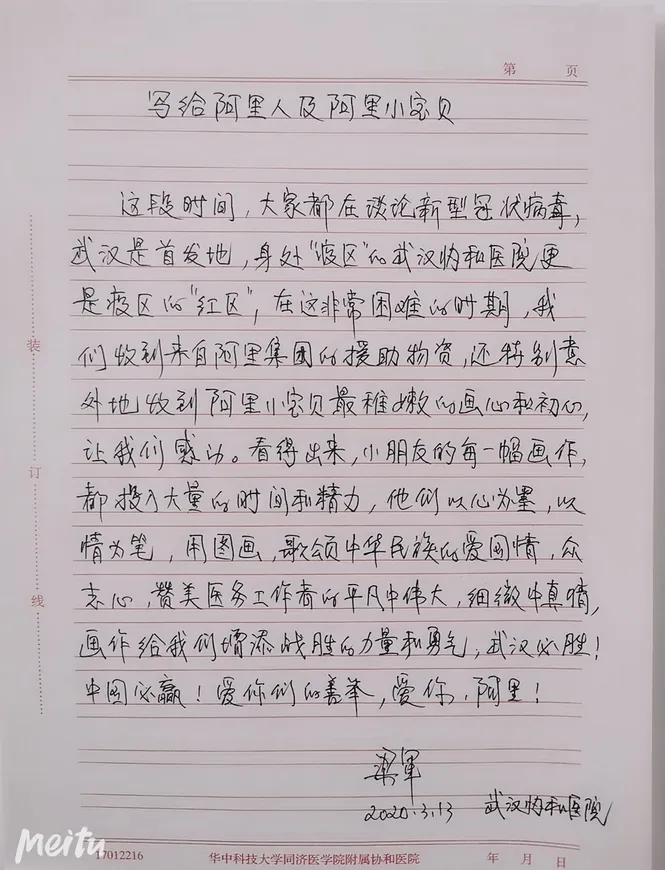 第 页
写给阿里人及阿里小宝贝
这段时间，大家都在谈论新型冠状病毒，
武汉是首发地，身处“疫区”的武汉协和医院更
是疫区的“红区”，在这非常困难的时期，我
们收到来自阿里集团的援助物资，还特别意
外地收到阿里小宝贝最稚嫩的画心和初心，
让我们感动。看得出来，小朋友的每一幅画作，
都投入大量的时间和精力，他们以心为墨，以
情为笔，用图画，歌颂中华民族的爱国情，众
志心，赞美医务工作者的平凡中伟大，细微中真情，
画作给我们增添战胜的力量和勇气，武汉必胜！
中国必赢！爱你们的善举，爱你，阿里！
梁军
2020.3.13 武汉协和医院
装
订
线
17012216 华中科技大学同济医学院附属协和医院 年 月 日
Meitu